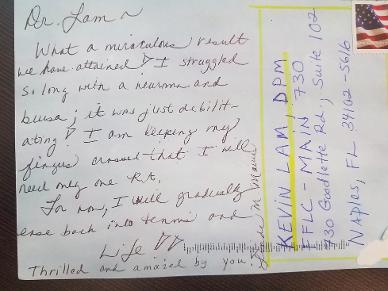 Dr. Lam ~
What a miraculous result
we have attained! I struggled
so long with a neuroma and
bursa; it was just debilit-
ating! I am keeping my
fingers crossed that I will
need only one Rx.
For now, I will gradually
ease back into tennis and
Life!!
Thrilled and amazed by you
KEVIN LAM, DPM
FFLC - MAIN 730
730 Goodlette Rd., Suite 102
NAPLES, FL 34102-5616